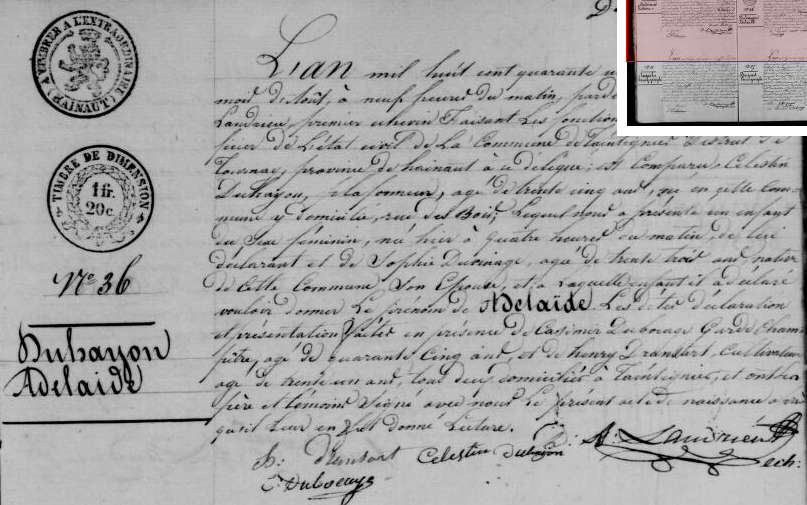 A TIMBRER A L'EXTRAORDINAIRE
(HAINAUT)
TIMBRE DE DIMENSION
1 fr.
20 c.
N° 36
Duhayon
Adelaïde
L'an mil huit cent quarante
mois d'Août, à neuf heures du matin, par de
Landrieu, premier échevin faisant les fonction
ficier de L'état civil de La Commune de Taintegnies District de
Tournay, province de hainaut à ce délégué; est Comparu Célestin
Duhayon, plafonneur, agé de trente cinq ans, né en cette Com-
mune y domicilié, rue des Bois; Lequel nous a présenté un enfant
du Sexe féminin, né hier à quatre heures du matin, de lui
déclarant et de Sophie Dubocage, agée de trente trois ans native
de Cette Commune, Son Epouse, et à Laquelle enfant il a déclaré
vouloir donner Le prénom de Adelaïde. Les dites déclaration
et présentation faites en présence de Casimir Dubocage Garde Cham-
pêtre, agé de quarante Cinq ans, et de henry Dransart, Cultivateur
agé de trente un ans, tous deux domiciliés à Taintegnies, et ont les
père et témoins Signé avec nous Le présent acte de naissance a
qu'il Leur en fut donné Lecture.
h: Dransart Celestin duhayon A: Landrieu
C Dubocage ech: